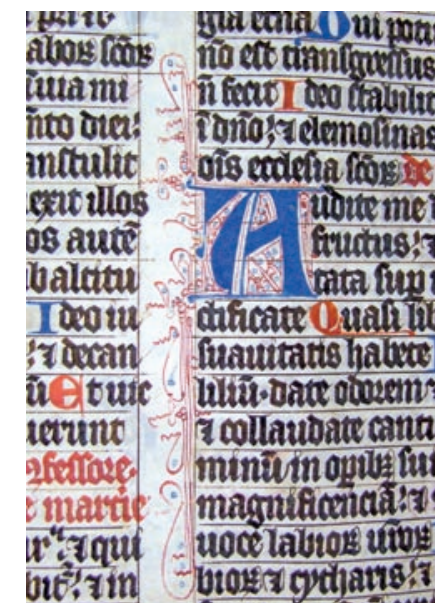 labioꝝ sc̄oꝝ
nto diei:
anstulit
exit illos
os autē
b altitu
Ideo iu
⁊ decan
ū Et uic
uerunt
nfessore.
e martie
⁊ qui
bit: ⁊ in
Qui poti
nō est transgressus
n̄ fecit Ideo stabilit
ī dn̄o: ⁊ elemosinas
oīs ecclesia sc̄oꝝ de
Audite me
fructus: ⁊
tata sup
ctificate Quasi lib
suauitatis habete
liliū. date odorem ⁊
⁊ collaudate canti
minū in opibꝫ sui
magnificenciā: ⁊
uoce labioꝝ
bioꝝ ⁊ cytharis: ⁊